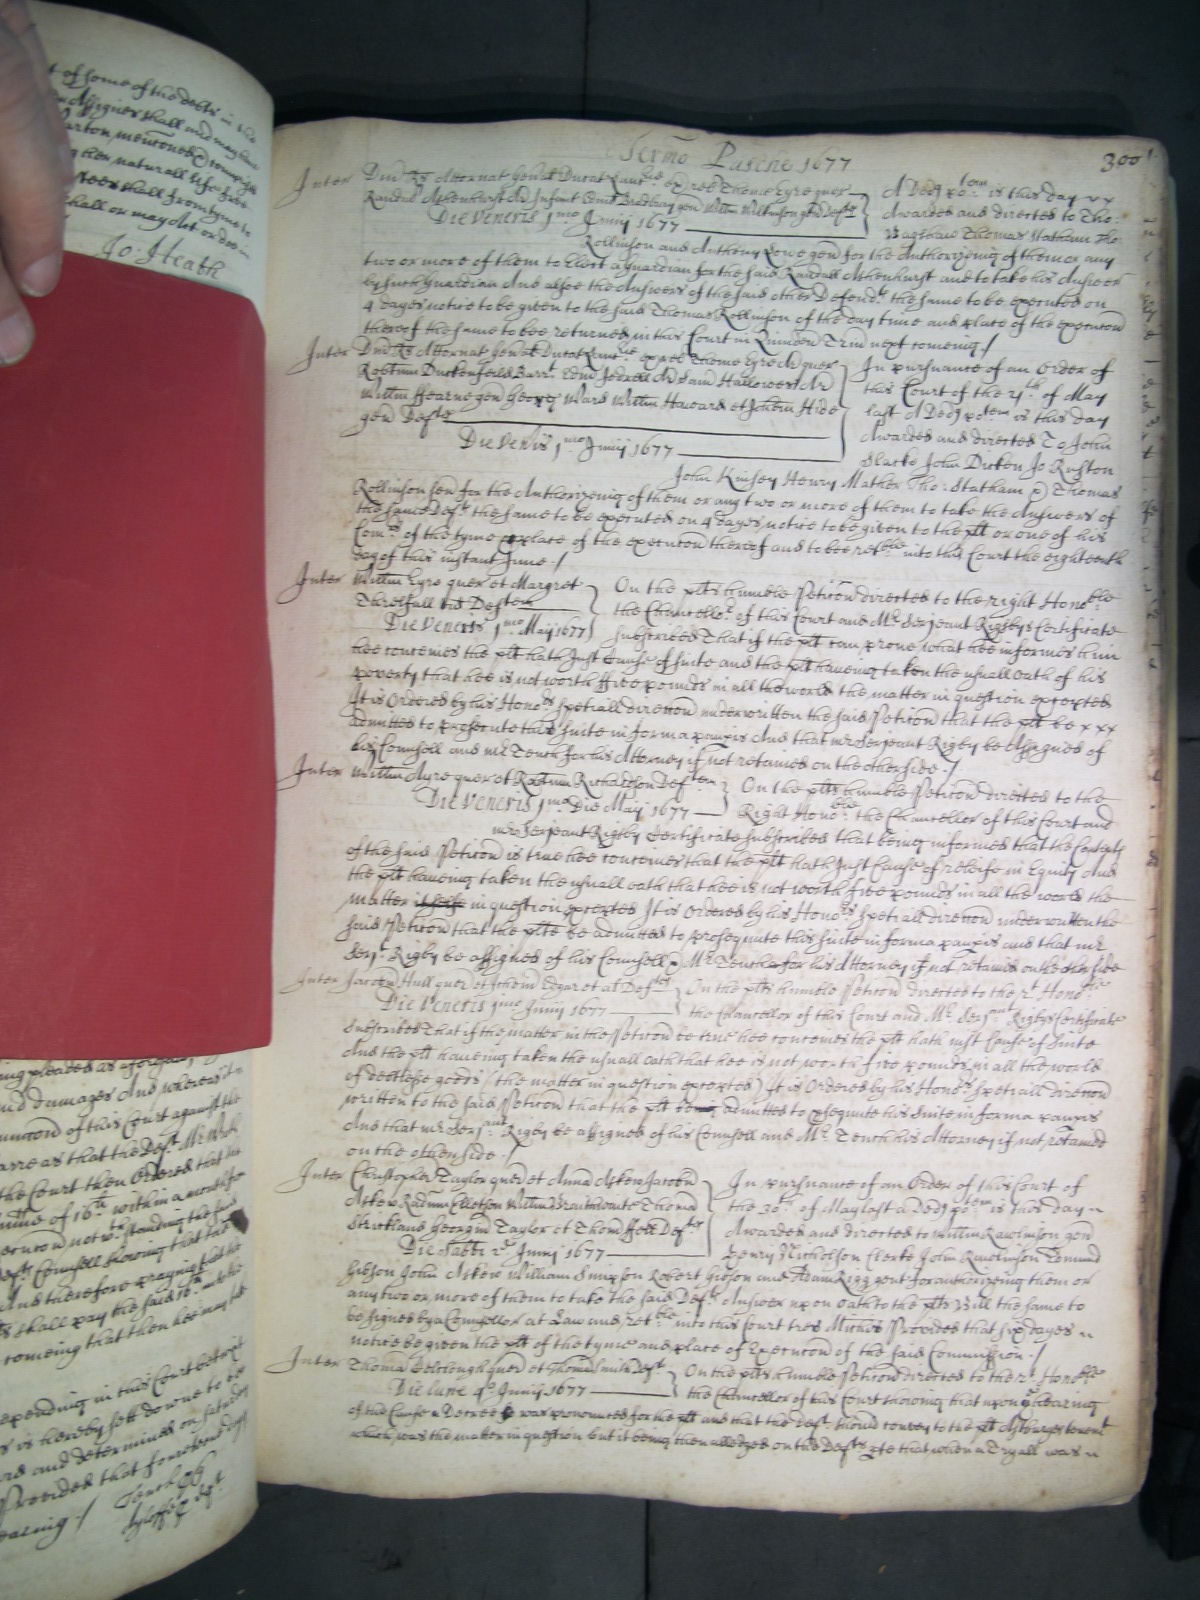 t of some of the debts in the
Assignes shall and may have
arton mentoned & comprized
g her naturall life five
stees shall from tyme to
hall or may Act or doe in
Jo: Heath
Termo Pasche 1677
300
Inter Dm Rs Attornat genal Ducat Lanc ex rel Thome Eyre quer
Randm Ashenhurst Ar Infant Bradbury gen Willm Willinson gen Defts
Die Veneris 1mo Junij 1677
A Dedj potem is this day xx
Awarded and directed to Tho:
Bagshaw Thomas Statham Tho:
Rollinson and Anthony Lowe gen for the Authorizeing of them or any
two or more of them to Elect a Guardian for the said Randall Ashenhurst and to take his Answer
by such Guardian And alsoe the Answeres of the said other Defendts the same to be executed on
4 dayes notice to be given to the said Thomas Rollinson of the day time and place of the execucon
thereof the same to bee returned in this Court in Quinden Trin next comeing ./
Inter Dm Rs Attornat genal Ducat Lanc ex rel Thome Eyre Ar quer
Robtum Duckenfeild Barrt Edm Jodrell Ar Sam Hallowes Ar
Willm Hearne gen Georg Ward Willm Haward et Johem Hide
gen Defts
Die Venis 1mo Junij 1677
In pursuance of an Order of
this Court of the 21th of May
last A Dedj potem is this day
Awarded and directed To John
Slacke John Dicken Jo Ruston
John Kinsey Henry Mather Tho: Statham & Thomas
Rollinson gen for the Authorizeing of them or any two or more of them to take the Answers of
the same Defts the same to be executed on 4 dayes notice to be given to the plt or one of his
Comrs of the tyme & place of the execucon thereof and to bee retble into this Court the eighteenth
day of this instant June ./
Inter Willm Eyre quer et Margret
Threlfall vid Deftem
Die Veneris 1mo May 1677
On the plts humble Peticon directed to the right Honoble
the Chancellor of this Court and Mr Serjeant Rigbys Certificate
subscribed That if the plt can prove what hee informes him
hee conceives the plt hath Just Cause of suite and the plt haveing taken the usuall oath of his
poverty that hee is not worth ffive pounds in all the world the matter in question excepted
It is Ordered by his Honors speciall direccon underwritten the said Peticon that the plt be xxx
admitted to prosecute this suite in forma paupis And that mr Serjeant Rigby be Assigned of
his Counsell and mr Tench for his Attorney if not retained on the other side ./
Inter Willm Ayre quer et Robtum Richardson Deftem
Die Veneris 1mo Die May 1677
On the plts humble Peticon directed to the
Right Honoble the Chancellor of this Court and
mr Serjeant Rigby Certificate subscribed that being informed that the Contents
of the said Peticon is true hee conceives that the plt hath Just Cause of releife in Equity And
the plt haveing taken the usuall oath that hee is not worth five pounds in all the world the
matter in question excepted It is Ordered by his Honors speciall direccon underwritten the
said Peticon that the plt be admitted to prosequute this suite in forma paupis and that mr
Serjt Rigby be assigned of his Counsell & Mr Tench for his Attorney if not retained on the other side
Inter Jacobm Hull quer et Johem Edgar et al Defts
Die Veneris 1mo Junij 1677
On the plts humble Peticon directed to the rt Honoble
the Chancellor of this Court and Mr Serjant Rigbys Certificate
subscribed That if the matter in the Peticon be true hee conceives the plt hath just Cause of suite
And the plt haveing taken the usuall oath that hee is not worth five pounds in all the world
of debtlesse goods (the matter in question excepted) It is Ordered by his Honors speciall direccon
written to the said Peticon that the plt be admitted to psequute his suite in forma paupis
And that mr Serjant Rigby be assigned of his Counsell and Mr Tench his Attorney if not retained
on the other side ./
Inter Christopher Taylor quer et Anna Askew Jacobu
Askew Radum Elletson Willm Braithwaite Thoma
Strickland Georgiu Taylor et Thom ffell Defts
Die Sabbi 2o Junij 1677
In pursuance of an Order of this Court of
the 30th of May last a Dedj potem is this day
Awarded and directed to Willm Rawlinson gen
Henry Nicholson Clerke John Rawlinson Edmund
Gibson John Askew William Simpson Robert Gibson and Adam Rigg gent for authorizeing them or
any two or more of them to take the said Defts Answer upon oath to the plts Bill the same to
be signed by a Counsellor at Law and retble into this Court tres Michis Provided that six dayes
notice be given the plt of the tyme and place of Execucon of the said Commission ./
Inter Thoma quer et Thoma Smith Deft
Die lune 4o Junij 1677
On the plts humble Peticon directed to the rt Honoble
the Chancellor of this Court showing that upon hearing
of the Cause a Decree was pronounced for the plt and that the Deft should convey to the plt tenemt
which was the matter in question but it being then alledged on the Defts pte that when a Tryall was
ing pleaded as aforesaid
and damages And whereas
unccon of this Court against the
arre as that the Deft
the Court then Ordered that
of 16th within a month
notwthstanding the said
Defts Counsell showing that the
And therefore praying that the
shall pay the said 16th
comeing that then hee may
epending in this Court betwixt
s is hereby sett downe to be
and determined on Saturday
Provided that fourteene dayes
earing ./